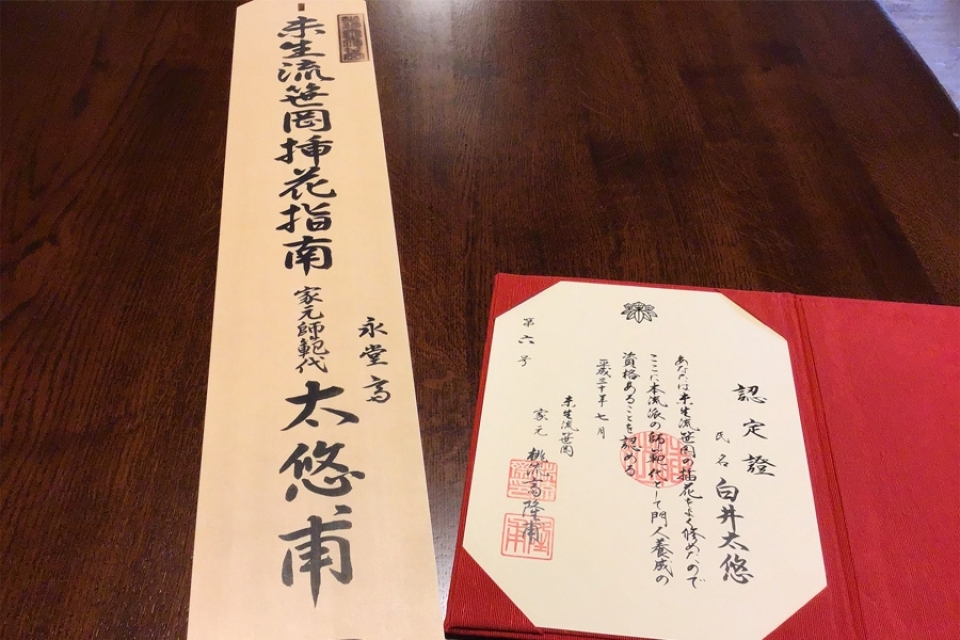 未生流笹岡挿花指南
家元師範代 太悠甫
永堂
認定證
氏名 白井太悠
あなたは未生流笹岡の挿花をよく修めたので
ここに本流派の師範代として門人養成の
資格あることを認める
平成三十年七月
未生流笹岡
家元 隆甫
第六号